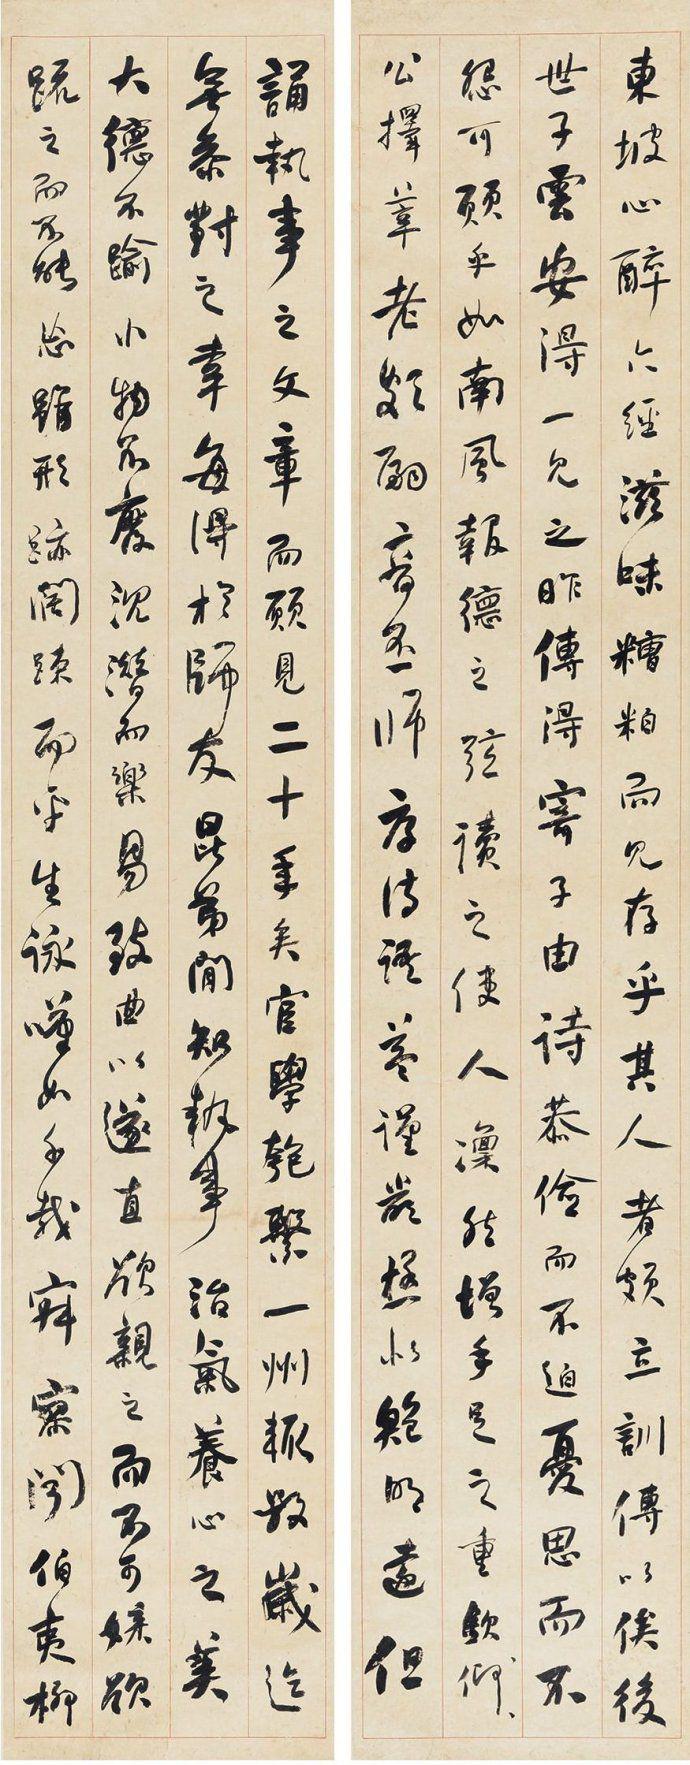 東坡心醉六經滋味糟粕而見存乎其人者頗立訓傳以俟後
世子雲安得一見之昨傳得寄子由詩恭儉而不迫憂思而不
怨可願乎如南風報德之弦讀之使人凜然增手足之重歎仰、
公擇莘老頗嗣音否師厚詩語甚謹嚴極似鮑明遠但
誦執事之文章而願見二十年矣官學匏繫一州輒數歲迄
無參對之幸每得於師友昆弟間知執事治氣養心之美
大德不踰小物不廢沉潛而樂易致曲以遂直欲親之而不可媟欲
疏之而不能忘雖形跡闊疎而平生詠嘆如千載寂寥聞伯夷柳